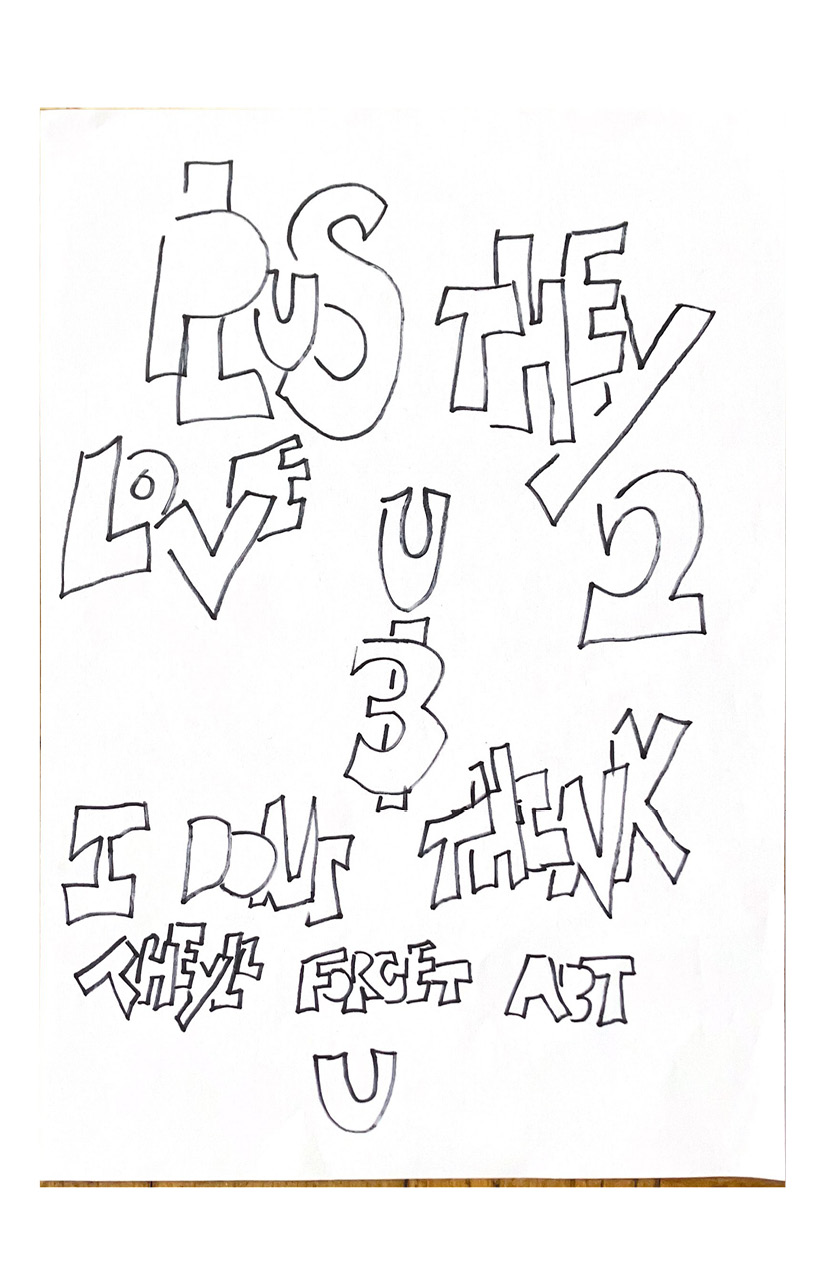 PLUS THEY
LOVE U 2
3
I DONT THINK
THEYLL FORGET ABT
U